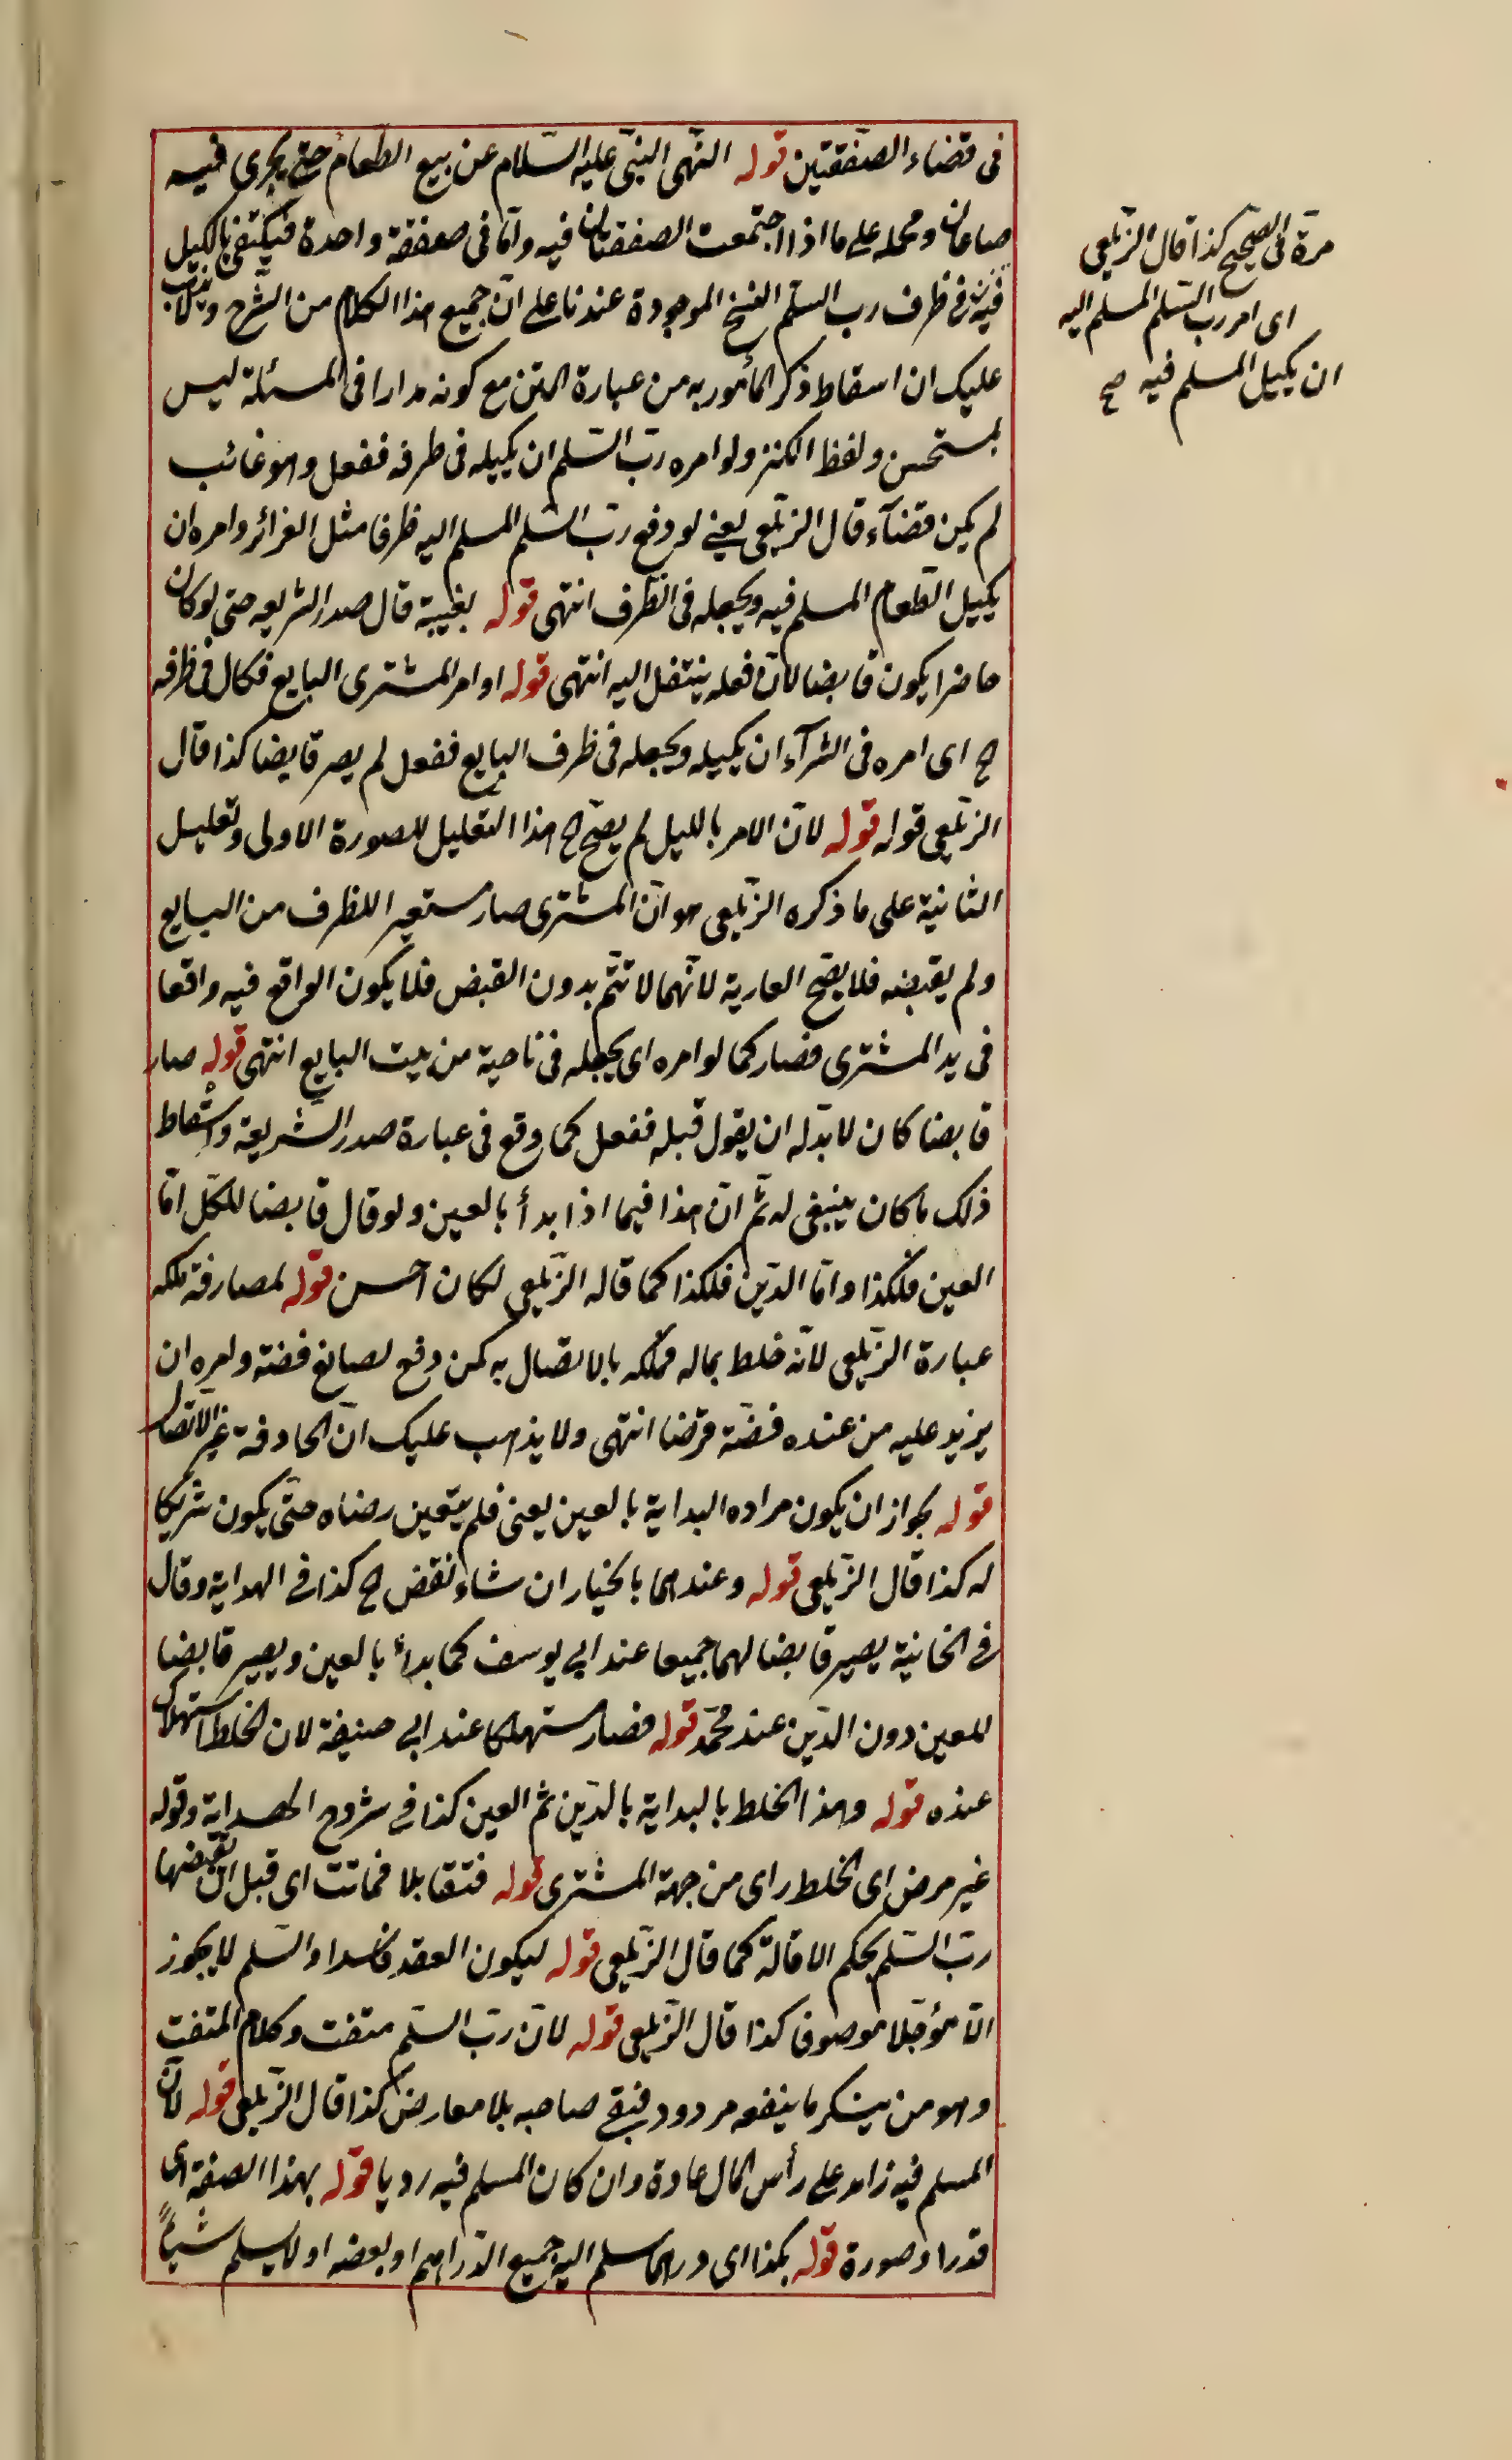 فى قضاء الصفقتين قوله النهى النبى عليه السلام عن بيع الطعام حتى يجرى فيه
صاعان ومحمله على ما اذا اجتمعت الصفقتان فيه واما فى صفقة واحدة فيكتفى بالكيل
فى ظرف رب السلم النسخ الموجودة عندنا على ان جميع هذا الكلام من الشرح ولا
عليك ان اسقاط ذكر المأمور به من عبارة المتن مع كونه مدارا فى المسئلة ليس
بمستحسن ولفظ الكنز ولو امره رب السلم ان يكيله فى ظرفه ففعل وهو غائب
لم يكن قضآء قال الزيلعى يعنى لو دفع رب السلم المسلم اليه ظرفا مثل الغرائر وامره ان
يكيل الطعام المسلم فيه ويجعله فى الظرف انتهى قوله بغيبة قال صدر الشريعه حتى لو كان
حاضرا يكون قابضا لان فعله ينتقل اليه انتهى قوله او امر المشترى البايع فكال فى ظرفه
ح اى امره فى الشرآء ان يكيله ويجعله فى ظرف البايع ففعل لم يصر قابضا كذا قال
الزيلعى قوله قوله لان الامر بالليل لم يصح ح هذا التعليل للصورة الاولى وتعليل
الثانية على ما ذكره الزيلعى هو ان المشترى صار مستعيرا للظرف من البايع
ولم يقبضه فلا يصح العارية لانها لا تتم بدون القبض فلا يكون الواقع فيه واقعا
فى يد المشترى فصار كما لو امره اى يجعله فى ناحية من بيت البايع انتهى قوله صار
قابضا كان لا بد له ان يقول قبله ففعل كما وقع فى عبارة صدر الشريعة واسقاط
ذلك ما كان ينبغى له ثم ان هذا فيما اذا بدأ بالعين ولو قال قابضا للكل اما
العين فلكذا واما الدين فلكذا كما قاله الزيلعى لكان احسن قوله لمصادفة ملكه
عبارة الزيلعى لانه خلط بماله فملكه بالاتصال به كمن دفع لصايغ فضة وامره ان
يزيد عليه من عنده فضة قرضا انتهى ولا يذهب عليك ان المصادفة غير الاتصال
قوله بجواز ان يكون مراده البداية بالعين يعنى فلم يتعين رضاه حتى يكون شريكا
له كذا قال الزيلعى قوله وعندهما بالخيار ان شاء نقض ح كذا فى الهداية وقال
فى الخانية يصير قابضا لهما جميعا عند ابى يوسف كما بدأ بالعين ويصير قابضا
للعين دون الدين عند محمد قوله فصار مستهلكا عند ابى حنيفة لان الخلط استهلاك
عنده قوله وهذا الخلط بالبداية بالدين ثم العين كذا فى شروح الهداية وقوله
غير مرض اى الخلط راى من جهة المشترى قوله فتقابلا فماتت اى قبل ان يقبضها
رب السلم بحكم الاقالة كما قال الزيلعى قوله ليكون العقد فاسدا والسلم لا يجوز
الا مؤجلا موصوفا كذا قال الزيلعى قوله لان رب السلم متعنت وكلام المتعنت
وهو من ينكر ما ينفعه مردود فبقى صاحبه بلا معارض كذا قال الزيلعى قوله لان
المسلم فيه زائد على رأس المال عادة وان كان المسلم فيه رديا قوله بهذا الصفة اى
قدرا وصورة قوله بكذا اى درهما سلم اليه جميع الدراهم او بعضه او لا يسلم شيأ
مرة فى الصحيح كذا قال الزيلعى
اى امر رب السلم المسلم اليه
ان يكيل المسلم فيه صح